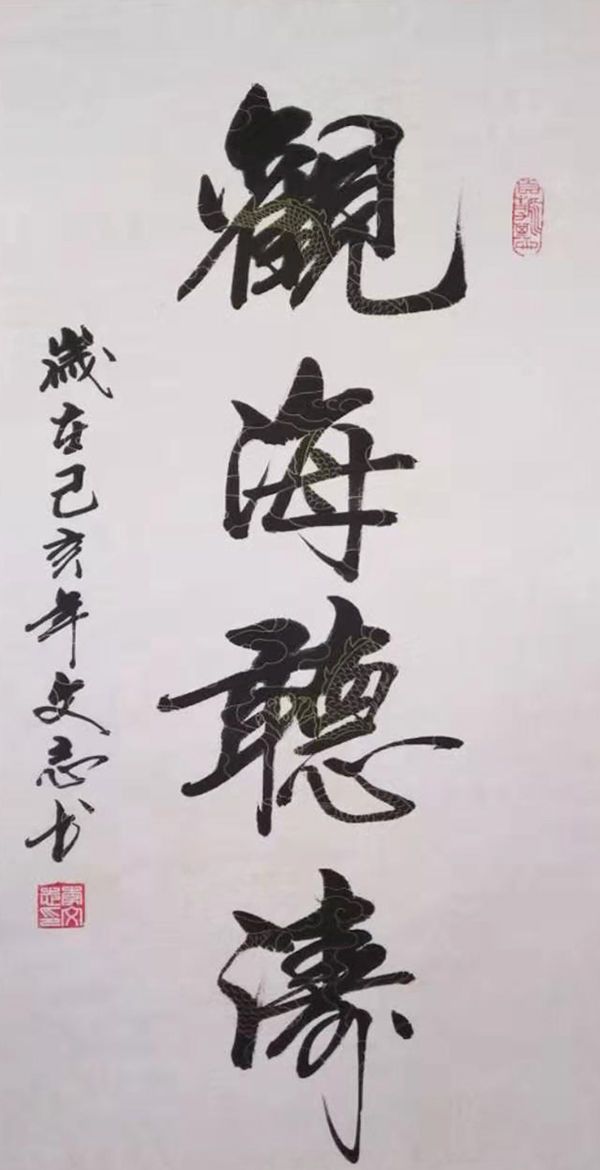 觀海聽濤
歲在己亥年文志书